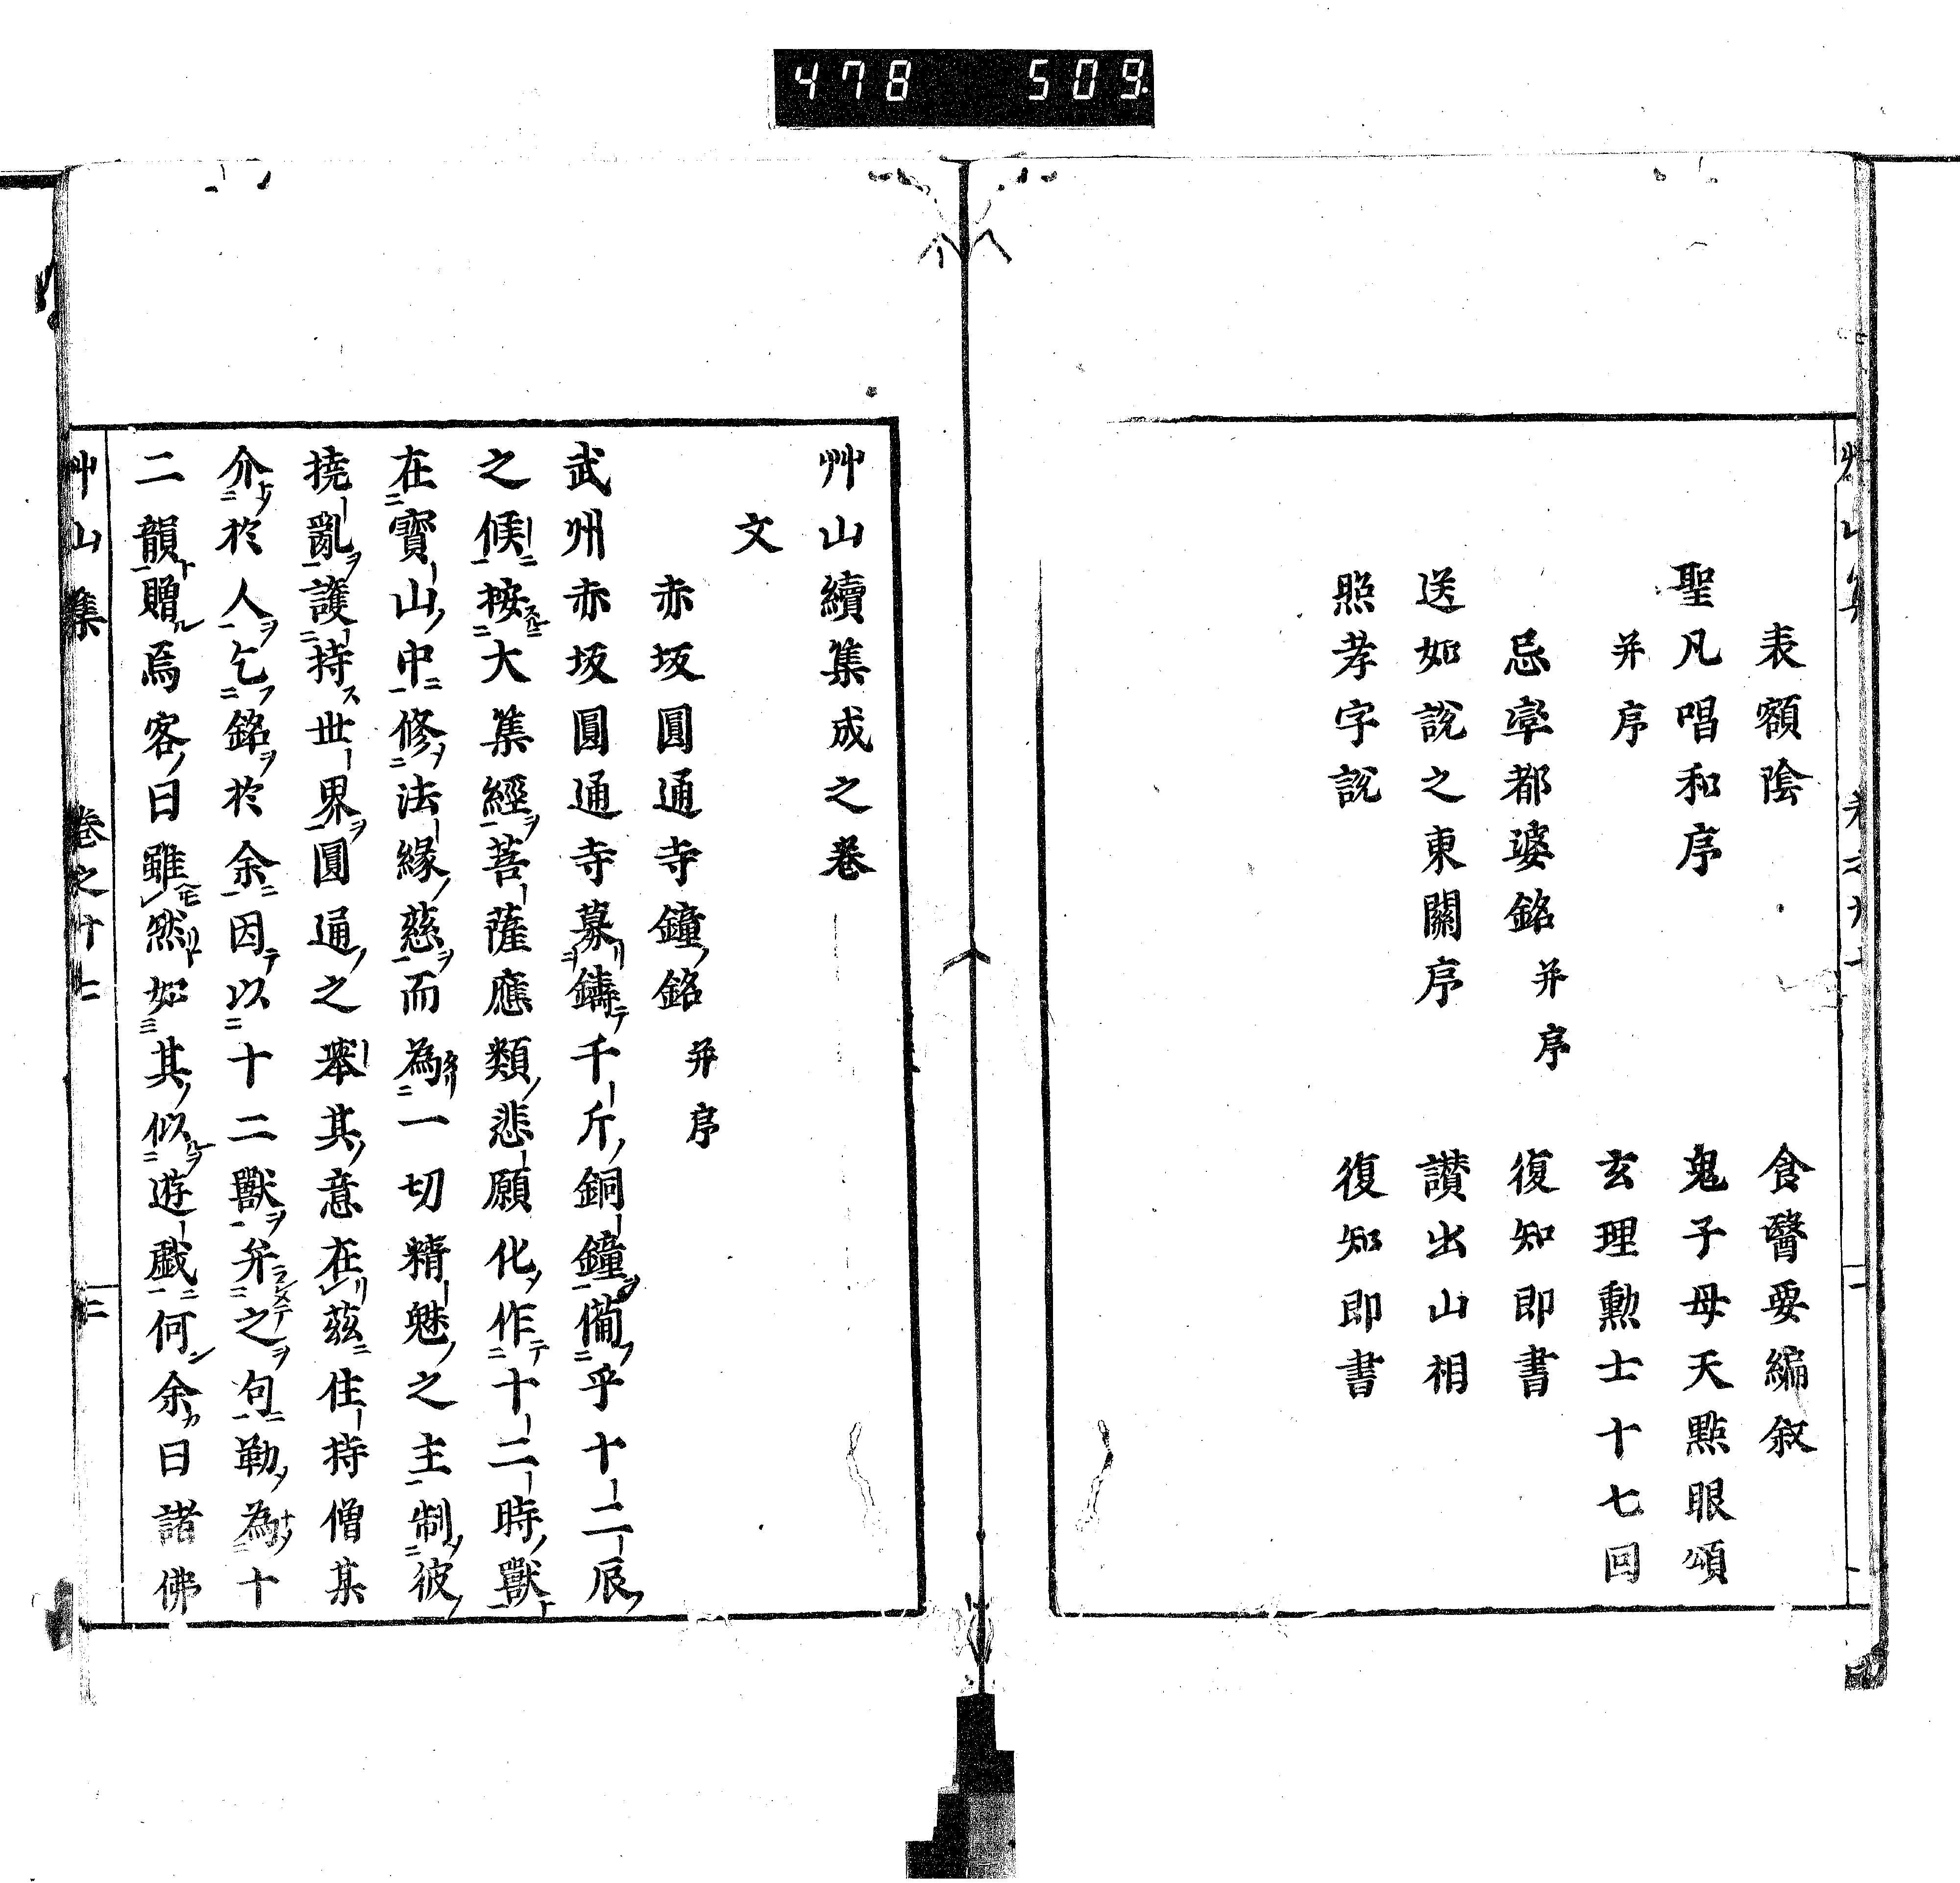 478 509
表額陰 食醫要編叙
聖凡唱和序 鬼子母天點眼頌
并序 玄理勲士十七回
忌率都婆銘并序 復知即書
送如說之東關序 讃出山相
照孝字說 復知即書
艸山續集成之卷
文
赤坂圓通寺鐘銘并序
武州赤坂圓通寺募鑄千斤銅鐘備乎十二辰
之候按大集經菩薩應類悲願化作十二時獸
在寶山中修法緣慈而為一切精魅之主制彼
撓亂護持世界圓通之舉其意在茲住持僧某
介於人乞銘於余因以十二獸弁之句勒為十
二韻贈焉客曰雖然如其似遊戲何余曰諸佛
艸山集 卷之廿七 二